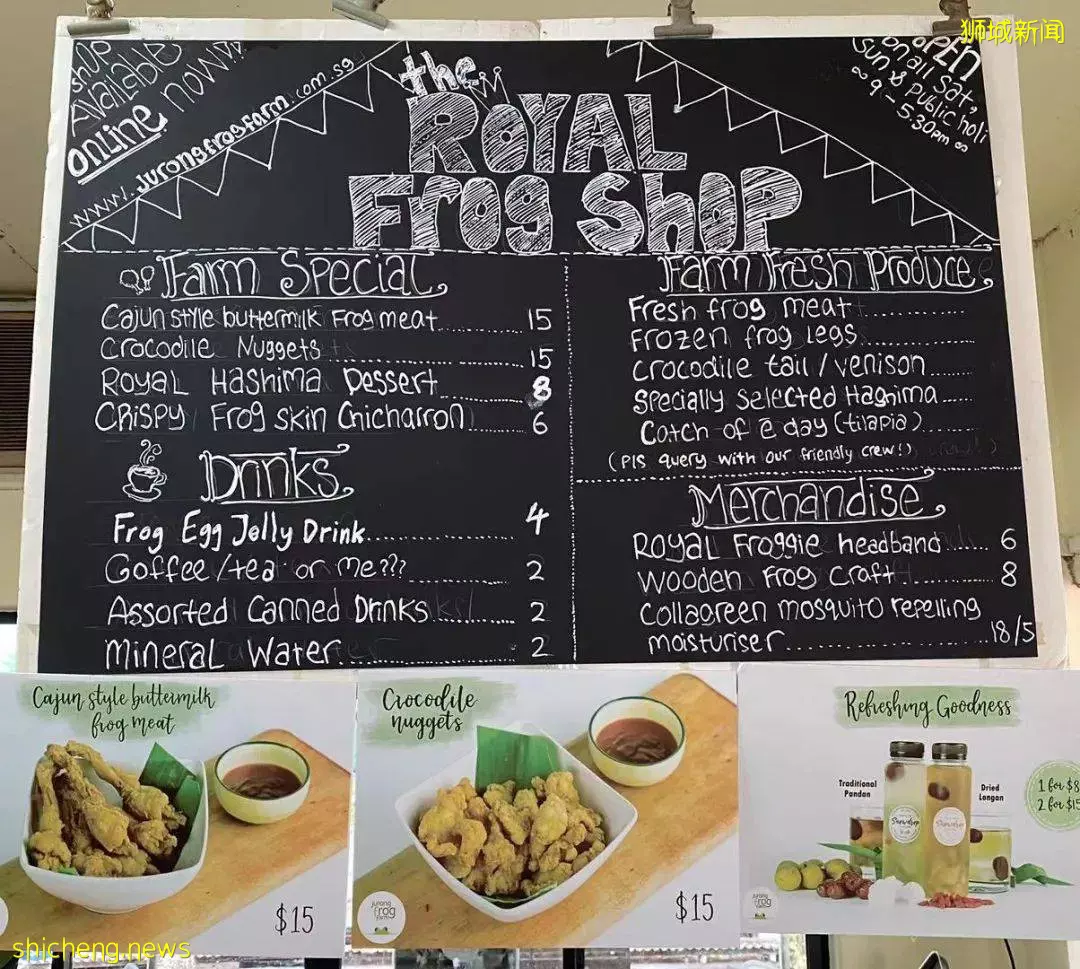 狮城新闻
SHOP
AVailable
ONLINE now!!
www.Jurongfrogfarm.com.sg
OPEN
on all Sat,
Sun & Public holi
9 - 5.30pm
the
ROYAL
Frog Shop
Farm Special
Cajun style buttermilk Frog meat 15
Crocodile Nuggets 15
ROYAL Hashima Dessert 8
CRisPy Frog skin Chicharron 6
Drinks
Frog Egg Jelly Drink 4
Coffee/tea or me??? 2
Assorted Canned Drinks 2
Mineral Water 2
Farm Fresh Produce
Fresh frog meat
Frozen frog legs
Crocodile tail / venison
Specially Selected Hashima
Catch of e day (tilapia)
(Pls query with our friendly crew!)
Merchandise
ROYAL Froggie headband 6
Wooden Frog Craft 8
Collagreen mosquito repelling
moisturiser 18/5
Cajun style buttermilk
frog meat
$15
Crocodile
nuggets
jurong
frog
farm
$15
Refreshing Goodness
Traditional
Pandan
Dried
Longan
1 for $8
2 for $15
shicheng.news